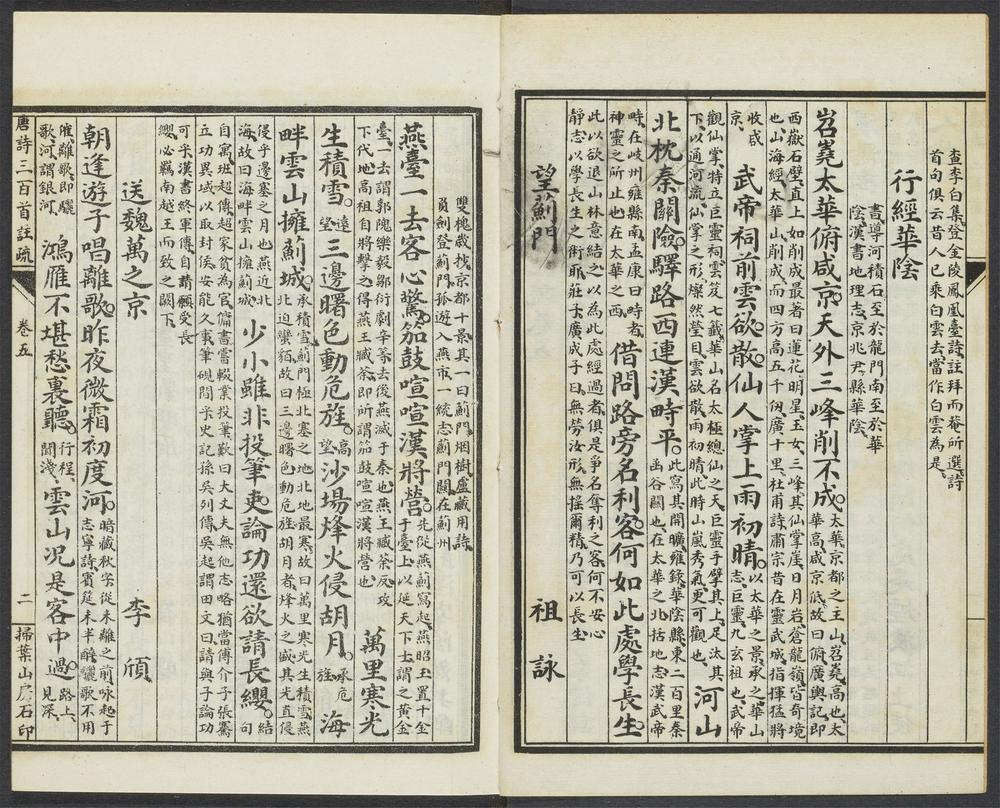 查李白集登金陵鳳凰臺詩註拜而菴所選詩
首句俱云昔人已乘白雲去當作白雲為是
行經華陰
書導河積石至於龍門南至於華
陰漢書地理志京兆尹縣華陰
岧嶤太華俯咸京天外三峰削不成太華京都之主山岧嶤高也太
華高咸京低故曰俯廣輿記即
西嶽石壁直上如削成最著者曰蓮花明星玉女三峰其仙掌崖日月岩蒼龍嶺皆奇境
也山海經太華山削成而四方高五千仞廣十里杜甫詩肅宗昔在靈武城指揮猛將
收咸
京
武帝祠前雲欲散仙人掌上雨初晴以太華之景承之華山
志巨靈九玄祖也武帝
觀仙掌特立巨靈祠雲笈七籤華山名太極總仙之天巨靈手擘其上足汰其
下以通河流仙掌之形燦然瑩目雲欲散雨初晴此時山嵐秀氣更可觀也
河山
北枕秦關險驛路西連漢畤平此寫其開曠雍錄華陰縣東二百里秦
函谷關也在太華之北括地志漢武帝
畤在岐州雍縣南孟康曰畤者
神靈之所止也在太華之西
借問路旁名利客何如此處學長生
此以欲退山林意結之以為此處經過者俱是爭名奪利之客何不安心
靜志以學長生之術耶莊子廣成子曰無勞汝形無搖爾精乃可以長生
望薊門
祖詠
雙槐歲抄京都十景其一曰薊門烟樹盧藏用詩
負劍登薊門孤遊入燕市一統志薊門關在薊州
燕臺一去客心驚笳鼓喧喧漢將營先從燕薊寫起燕昭王置千金
于臺上以延天下士謂之黃金
臺一去謂郭隗樂毅鄒衍劇辛等去後燕滅于秦也燕王臧荼反攻
下代地高祖自將擊之得燕王臧荼即所謂笳鼓喧喧漢將營也
萬里寒光
生積雪遠
望三邊曙色動危旌高
望沙場烽火侵胡月承危
旌海
畔雲山擁薊城承積雪薊門極北塞之地北地最寒故曰萬里寒光生積雪燕
北迫蠻貊故曰三邊曙色動危旌胡月者烽火之盛其光直侵
侵乎邊塞之月也燕近北
海故曰海畔雲山擁薊城
少小雖非投筆吏論功還欲請長纓結
句
自寓班超傳超家貧為官傭書嘗輟業投筆歎曰大丈夫無他志略猶當傳介子張騫
立功異域以取封侯安能久事筆硯間乎史記孫吳列傳吳起謂田文曰請與子論功
可乎漢書終軍傳自請願受長
纓必羈南越王而致之闕下
送魏萬之京
李頎
朝逢游子唱離歌昨夜微霜初度河暗藏秋字從未離之前咏起于
志寧詩賓筵未半醉驪歌不用
催離歌即驪
歌河謂銀河
鴻雁不堪愁裏聽行程
聞淺雲山況是客中過路上
見深
唐詩三百首註疏
卷五
二
掃葉山房石印